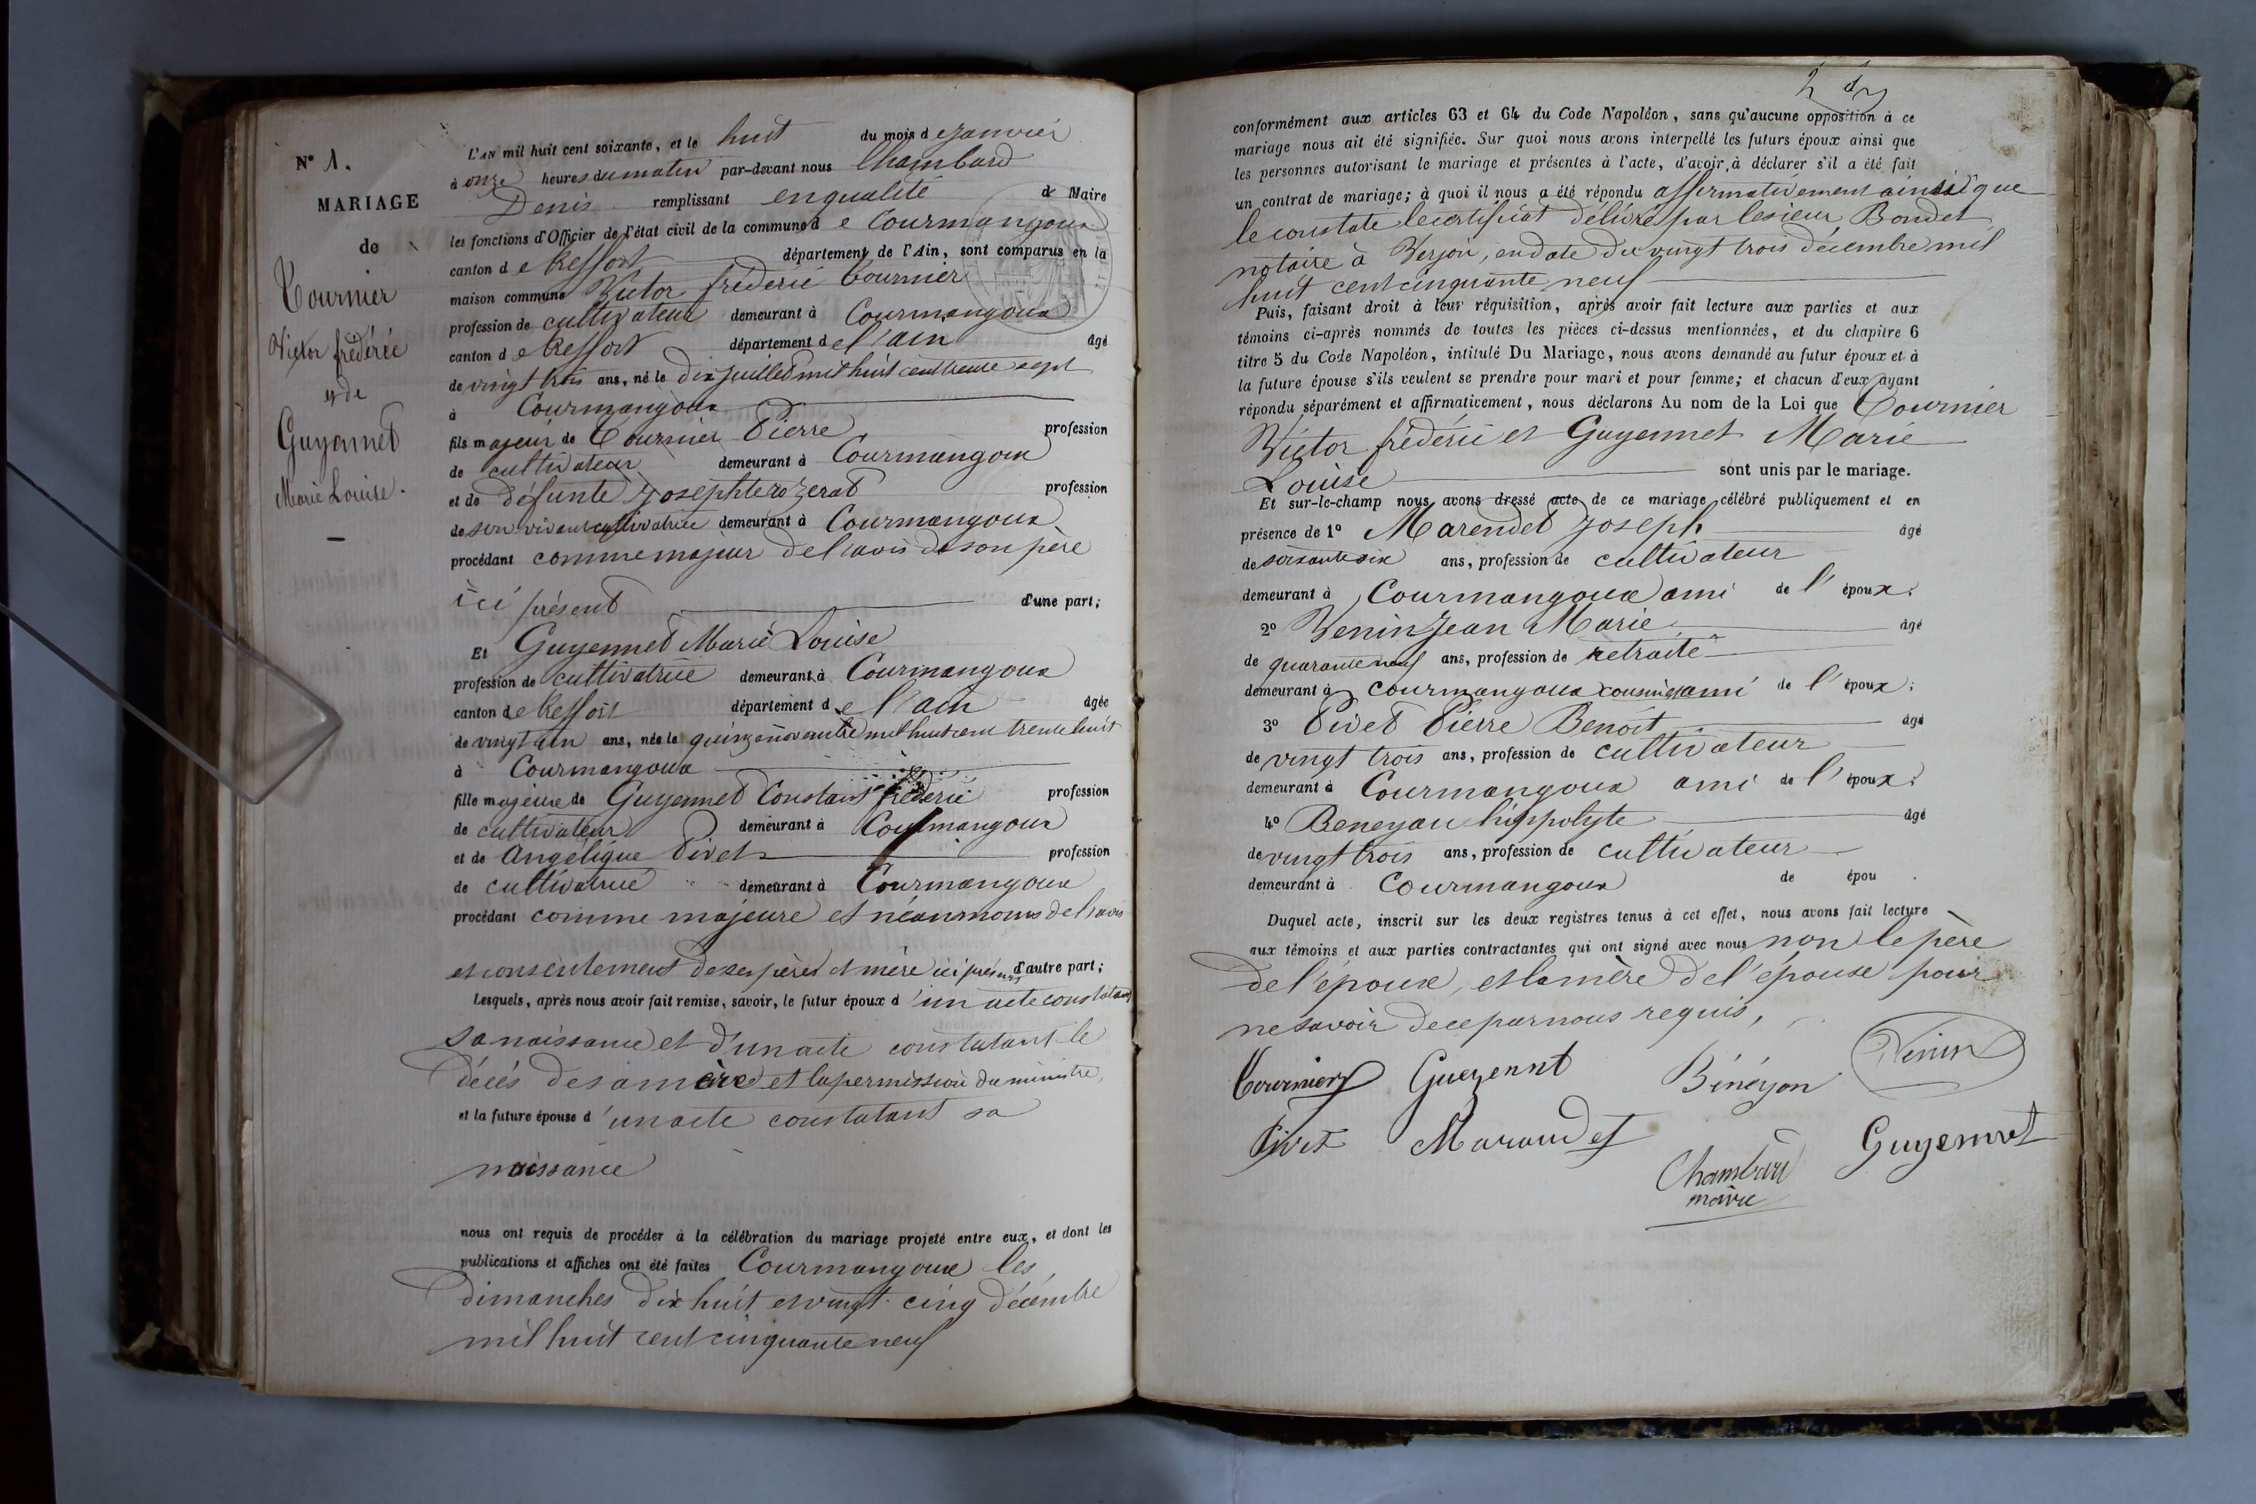 N° 1.
MARIAGE
de
Tournier
Victor frédéric
et de
Guyennet
Marie Louise.
L'AN mil huit cent soixante, et le huit du mois de Janvier
à onze heures du matin par-devant nous Chambard
Denis remplissant en qualité de Maire
les fonctions d'Officier de l'état civil de la commune de Courmangoux
canton de Treffort département de l'Ain, sont comparus en la
maison commune Victor frédéric Tournier
profession de cultivateur demeurant à Courmangoux
canton de Treffort département de l'ain âgé
de vingt trois ans, né le dix juillet mil huit cent trente sept
à Courmangoux
fils majeur de Tournier Pierre profession
de cultivateur demeurant à Courmangoux
et de défunte Josephte profession
de son vivant cultivatrice demeurant à Courmangoux
procédant comme majeur de l'avis de son père
ici présent d'une part;
Et Guyennet Marie Louise
profession de cultivatrice demeurant à Courmangoux
canton de Treffort département de l'ain âgée
de vingt un ans, née le quinze novembre mil huit cent trente huit
à Courmangoux
fille majeure de Guyennet Constant frédéric profession
de cultivateur demeurant à Courmangoux
et de Angélique Pivet profession
de cultivatrice demeurant à Courmangoux
procédant comme majeure et néanmoins de l'avis
et consentement de ses père et mère ici présents d'autre part;
Lesquels, après nous avoir fait remise, savoir, le futur époux d'un acte constatant
sa naissance et d'un acte constatant le
décès de sa mère et la permission du ministre,
et la future épouse d'un acte constatant sa
naissance
nous ont requis de procéder à la célébration du mariage projeté entre eux, et dont les
publications et affiches ont été faites Courmangoux les
dimanches dix huit et vingt cinq décembre
mil huit cent cinquante neuf
conformément aux articles 63 et 64 du Code Napoléon, sans qu'aucune opposition à ce
mariage nous ait été signifiée. Sur quoi nous avons interpellé les futurs époux ainsi que
les personnes autorisant le mariage et présentes à l'acte, d'avoir à déclarer s'il a été fait
un contrat de mariage; à quoi il nous a été répondu affirmativement ainsi que
le constate le certificat délivré par le sieur Bondet
notaire à Verjon, en date du vingt trois décembre mil
huit cent cinquante neuf
Puis, faisant droit à leur réquisition, après avoir fait lecture aux parties et aux
témoins ci-après nommés de toutes les pièces ci-dessus mentionnées, et du chapitre 6
titre 5 du Code Napoléon, intitulé Du Mariage, nous avons demandé au futur époux et à
la future épouse s'ils veulent se prendre pour mari et pour femme; et chacun d'eux ayant
répondu séparément et affirmativement, nous déclarons Au nom de la Loi que Tournier
Victor frédéric et Guyennet Marie
Louise sont unis par le mariage.
Et sur-le-champ nous avons dressé acte de ce mariage célébré publiquement et en
présence de 1° Marendet Joseph âgé
de soixante six ans, profession de cultivateur
demeurant à Courmangoux ami de l'époux.
2° Venin Jean Marie âgé
de quarante neuf ans, profession de retraité
demeurant à Courmangoux ami de l'époux;
3° Pivet Pierre Benoit âgé
de vingt trois ans, profession de cultivateur
demeurant à Courmangoux ami de l'époux.
4° Beneyau hippolyte âgé
de vingt trois ans, profession de cultivateur
demeurant à Courmangoux de épou .
Duquel acte, inscrit sur les deux registres tenus à cet effet, nous avons fait lecture
aux témoins et aux parties contractantes qui ont signé avec nous non le père
de l'époux, et la mère de l'épouse pour
ne savoir de ce par nous requis,
Tournier Gueyennt Bénéyon Venin
Pivet Maraudet Guyennet
Chambard
maire